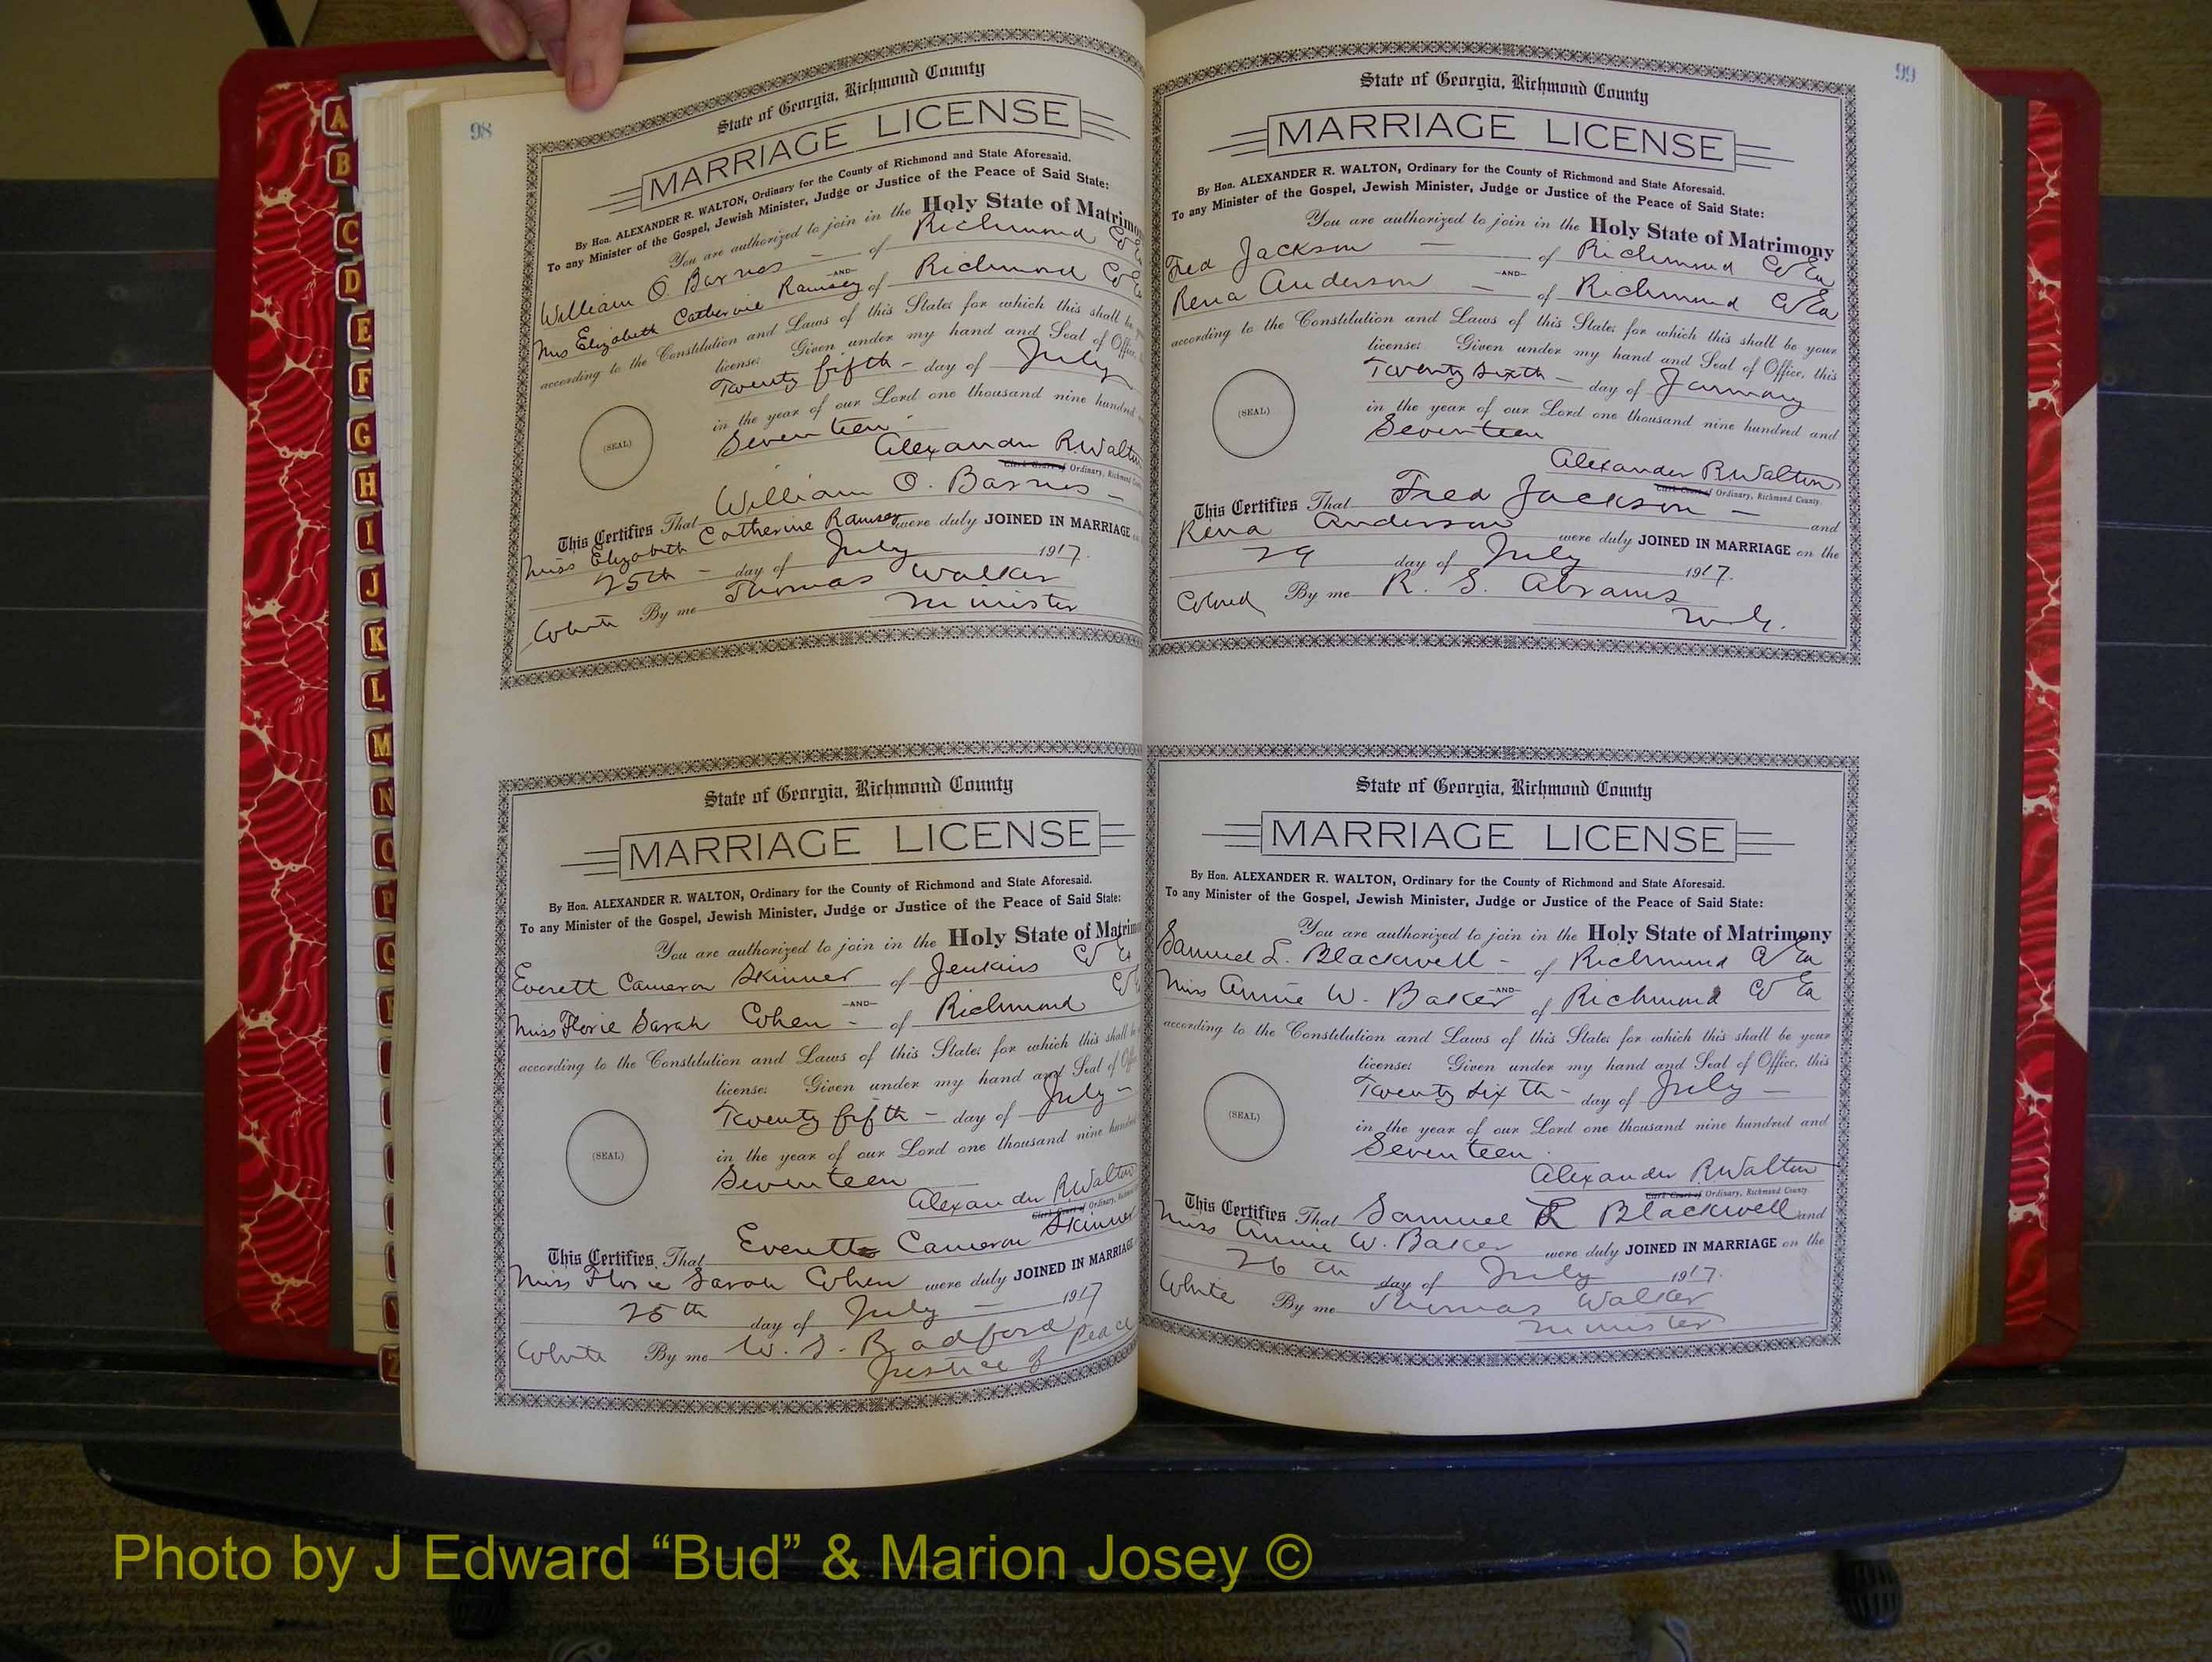 A
B
C
D
E
F
G
H
I
J
K
L
M
N
O
P
Q
Z
98
State of Georgia, Richmond County
MARRIAGE LICENSE
By Hon. ALEXANDER R. WALTON, Ordinary for the County of Richmond and State Aforesaid.
To any Minister of the Gospel, Jewish Minister, Judge or Justice of the Peace of Said State:
You are authorized to join in the Holy State of Matrimo
William O. Barnes - of Richmond Co
-AND-
Miss Elizabeth Catherine Ramsey of Richmond Co
according to the Constitution and Laws of this State; for which this shall be
license: Given under my hand and Seal of Office,
Twenty fifth - day of July
in the year of our Lord one thousand nine hundred
(SEAL)
Seventeen
Alexander R. Walton
Clerk Court of Ordinary, Richmond
This Certifies That William O. Barnes -
Miss Elizabeth Catherine Ramsey were duly JOINED IN MARRIAGE
25th - day of July 1917.
White By me Thomas Walker
Minister
State of Georgia, Richmond County
MARRIAGE LICENSE
By Hon. ALEXANDER R. WALTON, Ordinary for the County of Richmond and State Aforesaid.
To any Minister of the Gospel, Jewish Minister, Judge or Justice of the Peace of Said State:
You are authorized to join in the Holy State of Matrimo
Everett Cameron Skinner of Jenkins Co
-AND-
Miss Florie Sarah Cohen - of Richmond Co
according to the Constitution and Laws of this State; for which this shall
license: Given under my hand and Seal of
Twenty fifth - day of July -
in the year of our Lord one thousand nine hundre
(SEAL)
Seventeen
Alexander R. Walton
Clerk Court of Ordinary,
This Certifies That Everette Cameron Skinner
Miss Florie Sarah Cohen were duly JOINED IN MARRIAGE
25th day of July - 1917
White By me W. S. Radford
Justice of Peace
99
State of Georgia, Richmond County
MARRIAGE LICENSE
By Hon. ALEXANDER R. WALTON, Ordinary for the County of Richmond and State Aforesaid.
To any Minister of the Gospel, Jewish Minister, Judge or Justice of the Peace of Said State:
You are authorized to join in the Holy State of Matrimony
Fred Jackson - of Richmond Co Ga
-AND-
Rena Anderson - of Richmond Co Ga
according to the Constitution and Laws of this State; for which this shall be your
license: Given under my hand and Seal of Office, this
Twenty Sixth - day of January
in the year of our Lord one thousand nine hundred and
(SEAL)
Seventeen
Alexander R. Walton
Clerk Court of Ordinary, Richmond County.
This Certifies That Fred Jackson - and
Rena Anderson were duly JOINED IN MARRIAGE on the
29 day of July 1917.
Colored By me R. S. Abrams
M.G.
State of Georgia, Richmond County
MARRIAGE LICENSE
By Hon. ALEXANDER R. WALTON, Ordinary for the County of Richmond and State Aforesaid.
To any Minister of the Gospel, Jewish Minister, Judge or Justice of the Peace of Said State:
You are authorized to join in the Holy State of Matrimony
Samuel L. Blackwell - of Richmond Co Ga
-AND-
Miss Annie W. Baker of Richmond Co Ga
according to the Constitution and Laws of this State; for which this shall be your
license: Given under my hand and Seal of Office, this
Twenty Six th - day of July -
in the year of our Lord one thousand nine hundred and
(SEAL)
Seventeen.
Alexander R. Walton
Clerk Court of Ordinary, Richmond County.
This Certifies That Samuel L Blackwell and
Miss Annie W. Baker were duly JOINED IN MARRIAGE on the
26 th day of July 1917.
White By me Thomas Walker
Minister
Photo by J Edward “Bud” & Marion Josey ©